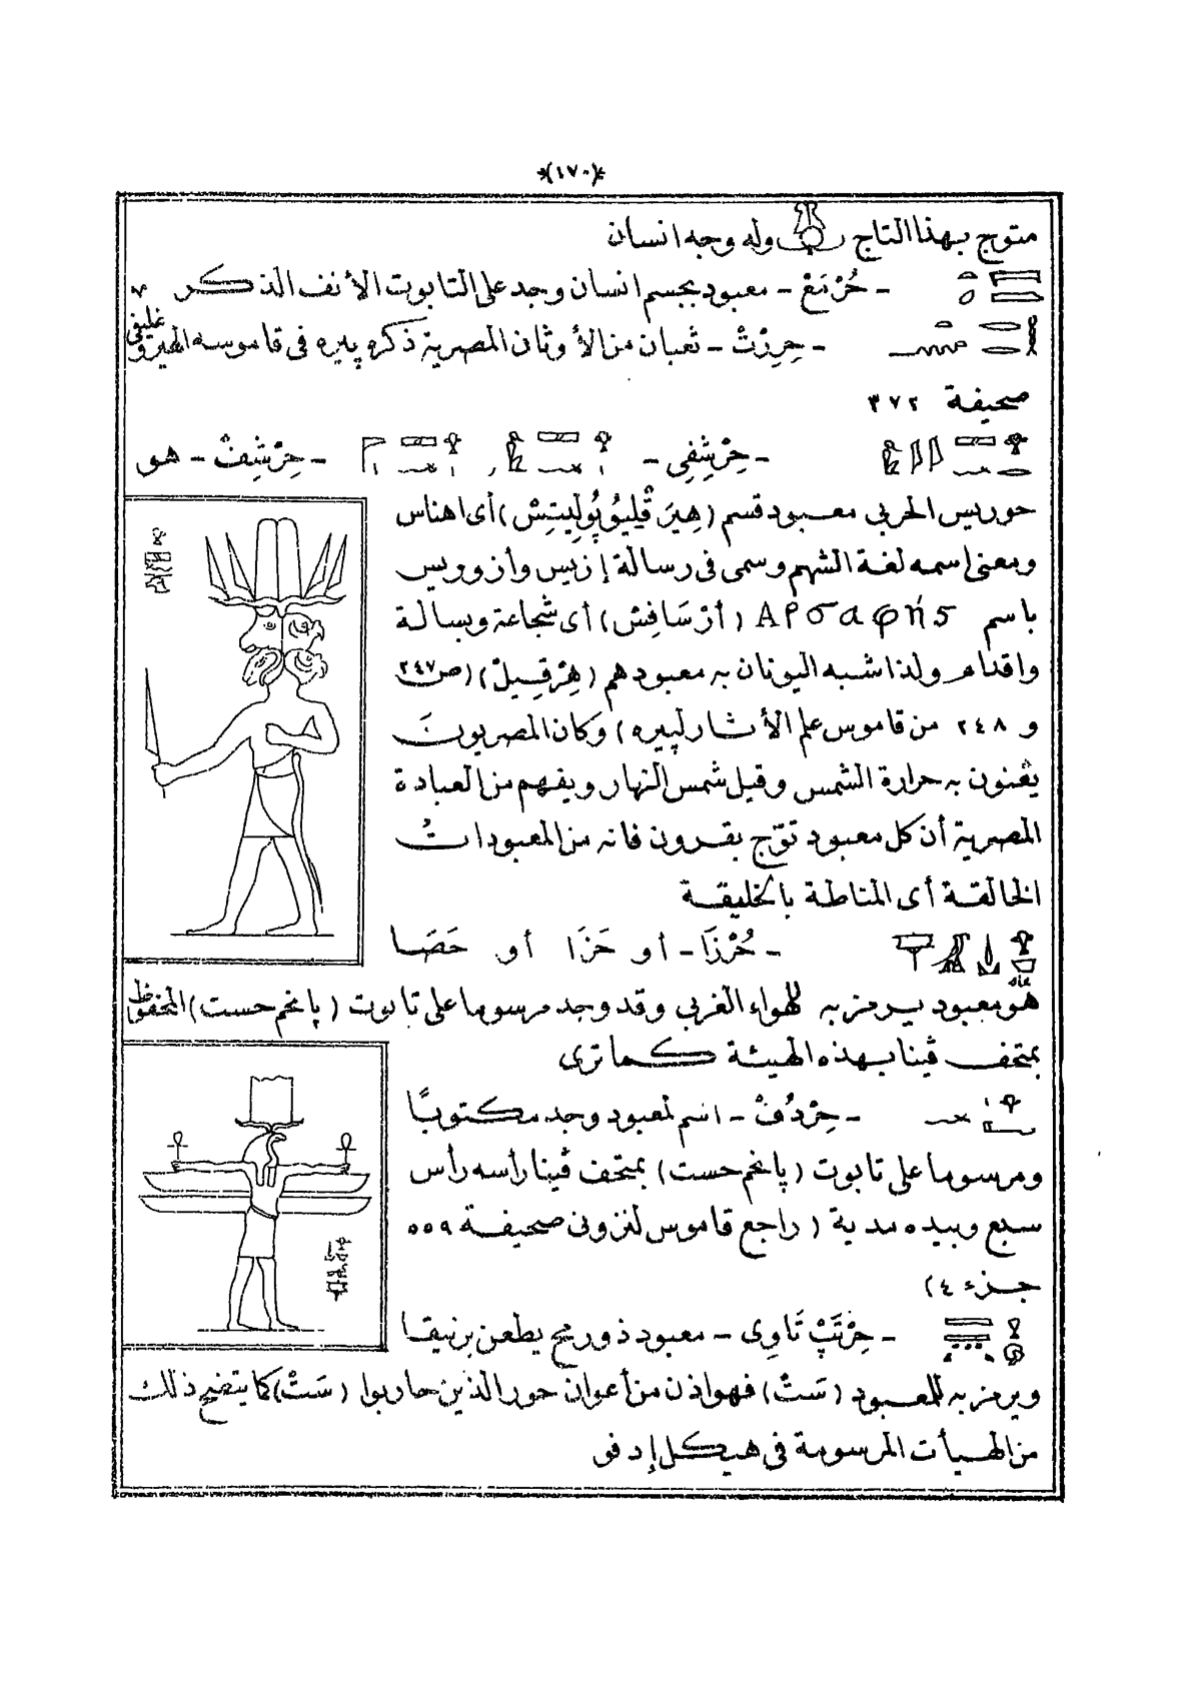 *(١٧٠)*
متوج بهذا التاج وله وجه انسان
- حُرْمَعْ - معبود بجسم انسان وجد على التابوت الأنف الذكر
- حِرِرْتْ - ثعبان من الأوثان المصرية ذكره پيره فى قاموسه الهيروغليفى
صحيفة ٣٧٢
- حِرْشِفِى - - حِرْشِفْ - هو
حوريس الحربى معبود قسم (هِيرَقْلِيُوپُولِيتِسْ) أى اهناس
ومعنى اسمه لغة الشهم وسمى فى رسالة إزيس وأزوريس
باسم Αρσαφης (أرْسَافِسْ) أى شجاعة وبسالة
واقدام ولذا شبه اليونان به معبودهم (هِرْقِيلْ) (ص ٢٤٧
و ٢٤٨ من قاموس علم الأثار لپيره) وكان المصريون
يعنون به حرارة الشمس وقيل شمس النهار ويفهم من العبادة
المصرية أن كل معبود توّج بقرون فانه من المعبودات
الخالقة أى المناطة بالخليقة
- حُرْزَا - أو حَزَا أو حَصَا
هو معبود يرمز به للهواء الغربى وقد وجد مرسوما على تابوت (پانحم حست) المحفوظ
بمتحف ڤينا بهذه الهيئة كما ترى
- حِرْدُفْ - اسم لمعبود وجد مكتوبًا
ومرسوما على تابوت (پانحم حست) بمتحف ڤينا رأسه رأس
سبع وبيده مدية (راجع قاموس لنزونى صحيفة ٥٥٩
جزء ٤)
- حِرْتَپْ تَاوِى - معبود ذو رمح يطعن برنيقا
ويرمز به للمعبود (سَتْ) فهو اذن من أعوان حور الذين حاربوا (سَتْ) كما يتضح ذلك
من الهيأت المرسومة فى هيكل إدفو